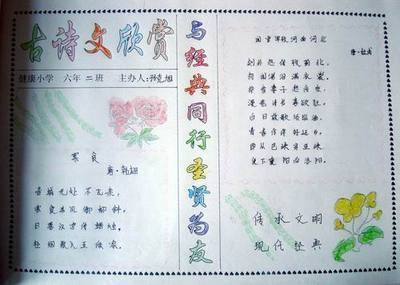 古诗文欣赏
健康小学 六年二班 主办人:
寒食
唐·韩翃
春城无处不飞花,
寒食东风御柳斜。
日暮汉宫传蜡烛,
轻烟散入五侯家。
与经典同行圣贤为友
闻官军收河南河北
唐·杜甫
剑外忽传收蓟北,
初闻涕泪满衣裳。
却看妻子愁何在,
漫卷诗书喜欲狂。
白日放歌须纵酒,
青春作伴好还乡。
即从巴峡穿巫峡,
便下襄阳向洛阳。
传承文明
现代经典